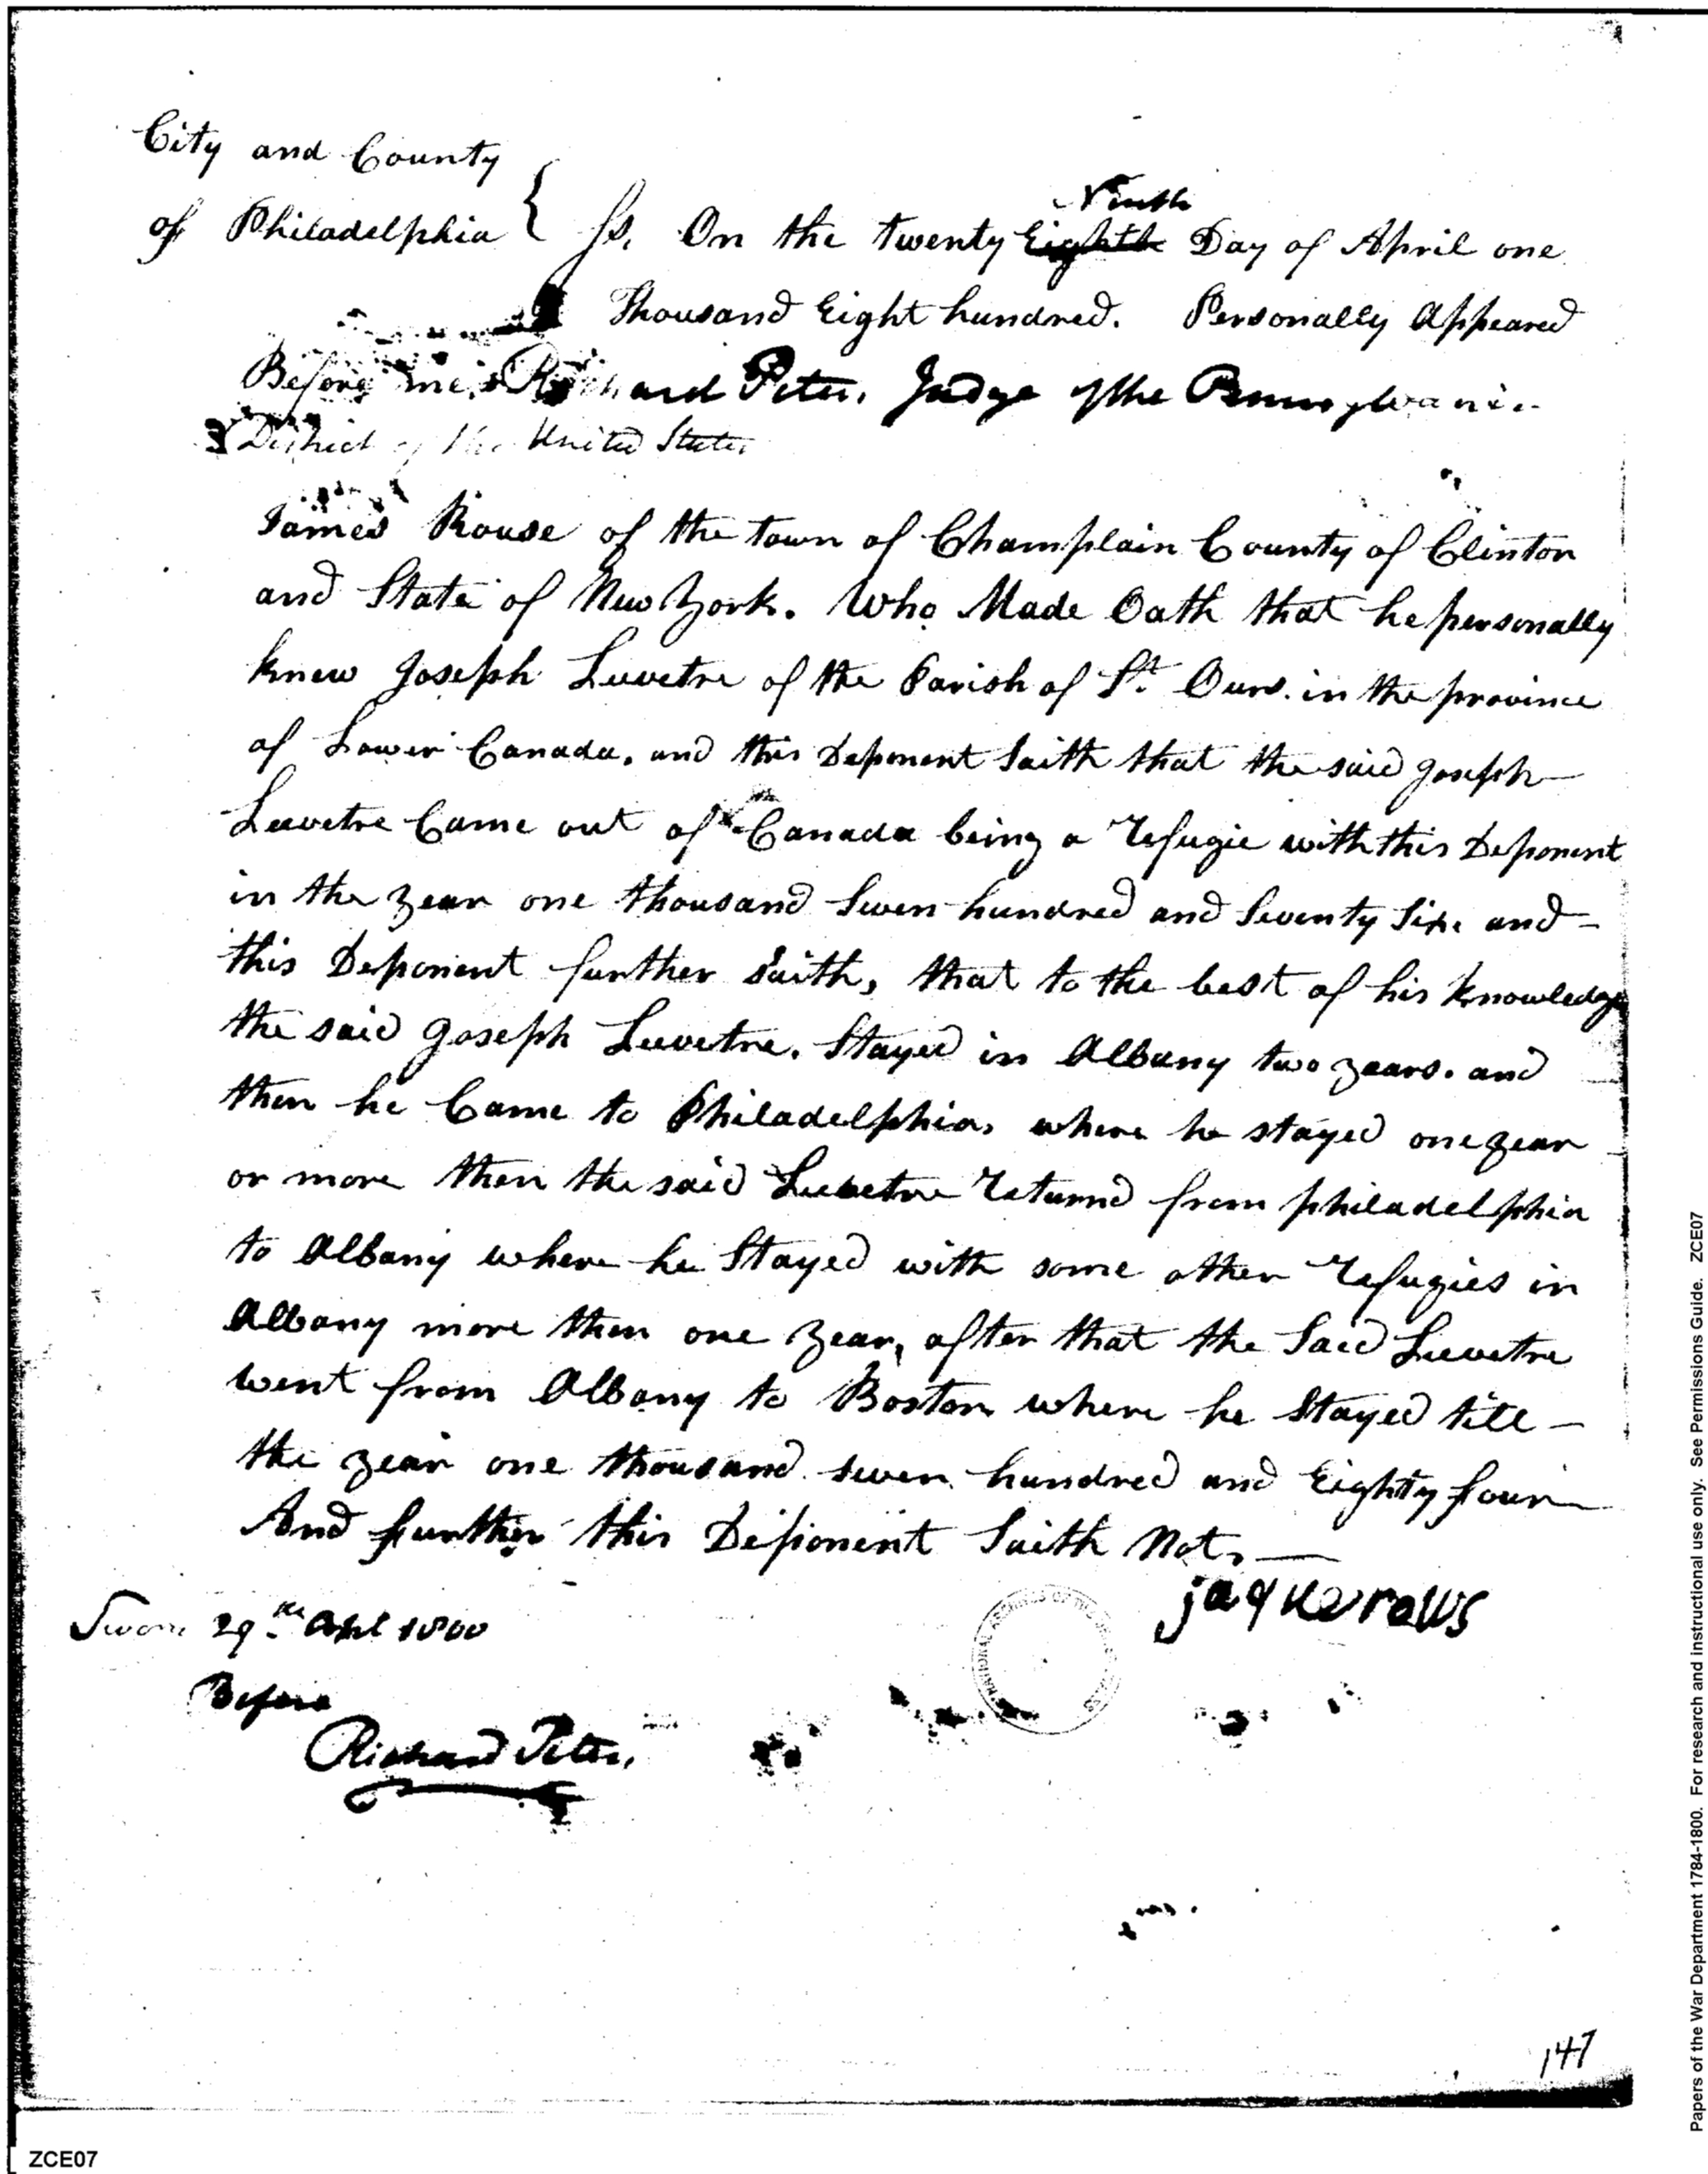 City and County
of Philadelphia { Ss. On the twenty Eighth Ninth Day of April one
Thousand Eight hundred. Personally Appeared
Before me, Richard Peters, Judge of the Pennsylvania
District of the United States
James Rouse of the town of Champlain County of Clinton
and State of New York. Who Made Oath that he personally
knew Joseph Leevetre of the Parish of St. Ours. in the province
of Lower Canada. and this Deponent Saith that the said Joseph
Leevetre Came out of Canada being a refugie with this Deponent
in the year one thousand Seven hundred and Seventy Six. and
this Deponent further Saith, that to the best of his knowledge
the said Joseph Leevetre. Stayed in Albany two years. and
then he Came to Philadelphia, where he stayed one year
or more then the said Leevetre returnd from philadelphia
to Albany where he Stayed with some other refugies in
Albany more then one year, after that the Said Leevetre
went from Albany to Boston where he Stayed till
the year one thousand seven hundred and Eighty four
And further this Deponent Saith Not.
jaque rows
Sworn 29th Apl 1800
Before
Richard Peters,
147
ZCE07
Papers of the War Department 1784-1800. For research and instructional use only. See Permissions Guide. ZCE07